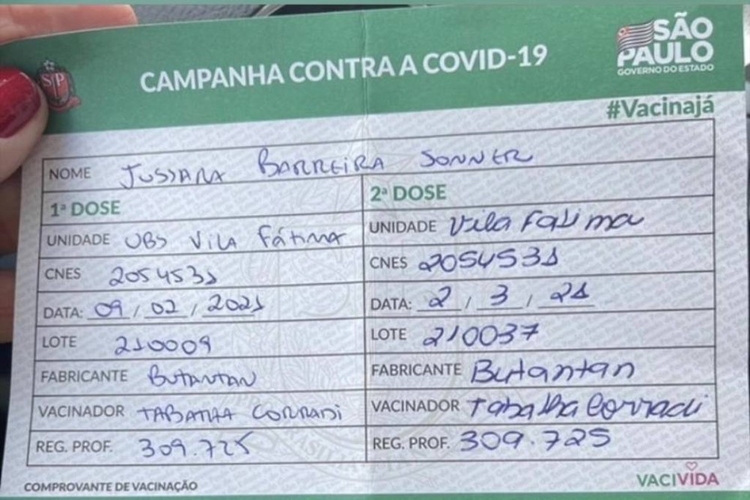 SP
CAMPANHA CONTRA A COVID-19
SÃO PAULO
GOVERNO DO ESTADO
#Vacinajá
NOME JUSSARA BARREIRA SONNER
1ª DOSE 2ª DOSE
UNIDADE UBS VILA FÁTIMA UNIDADE Vila Fatima
CNES 2054531 CNES 2054531
DATA: 09/02/2021 DATA: 2/3/21
LOTE 210009 LOTE 210037
FABRICANTE BUTANTAN FABRICANTE Butantan
VACINADOR TABATHA CORRADI VACINADOR Tabatha Corradi
REG. PROF. 309.725 REG. PROF. 309.725
COMPROVANTE DE VACINAÇÃO VACIVIDA